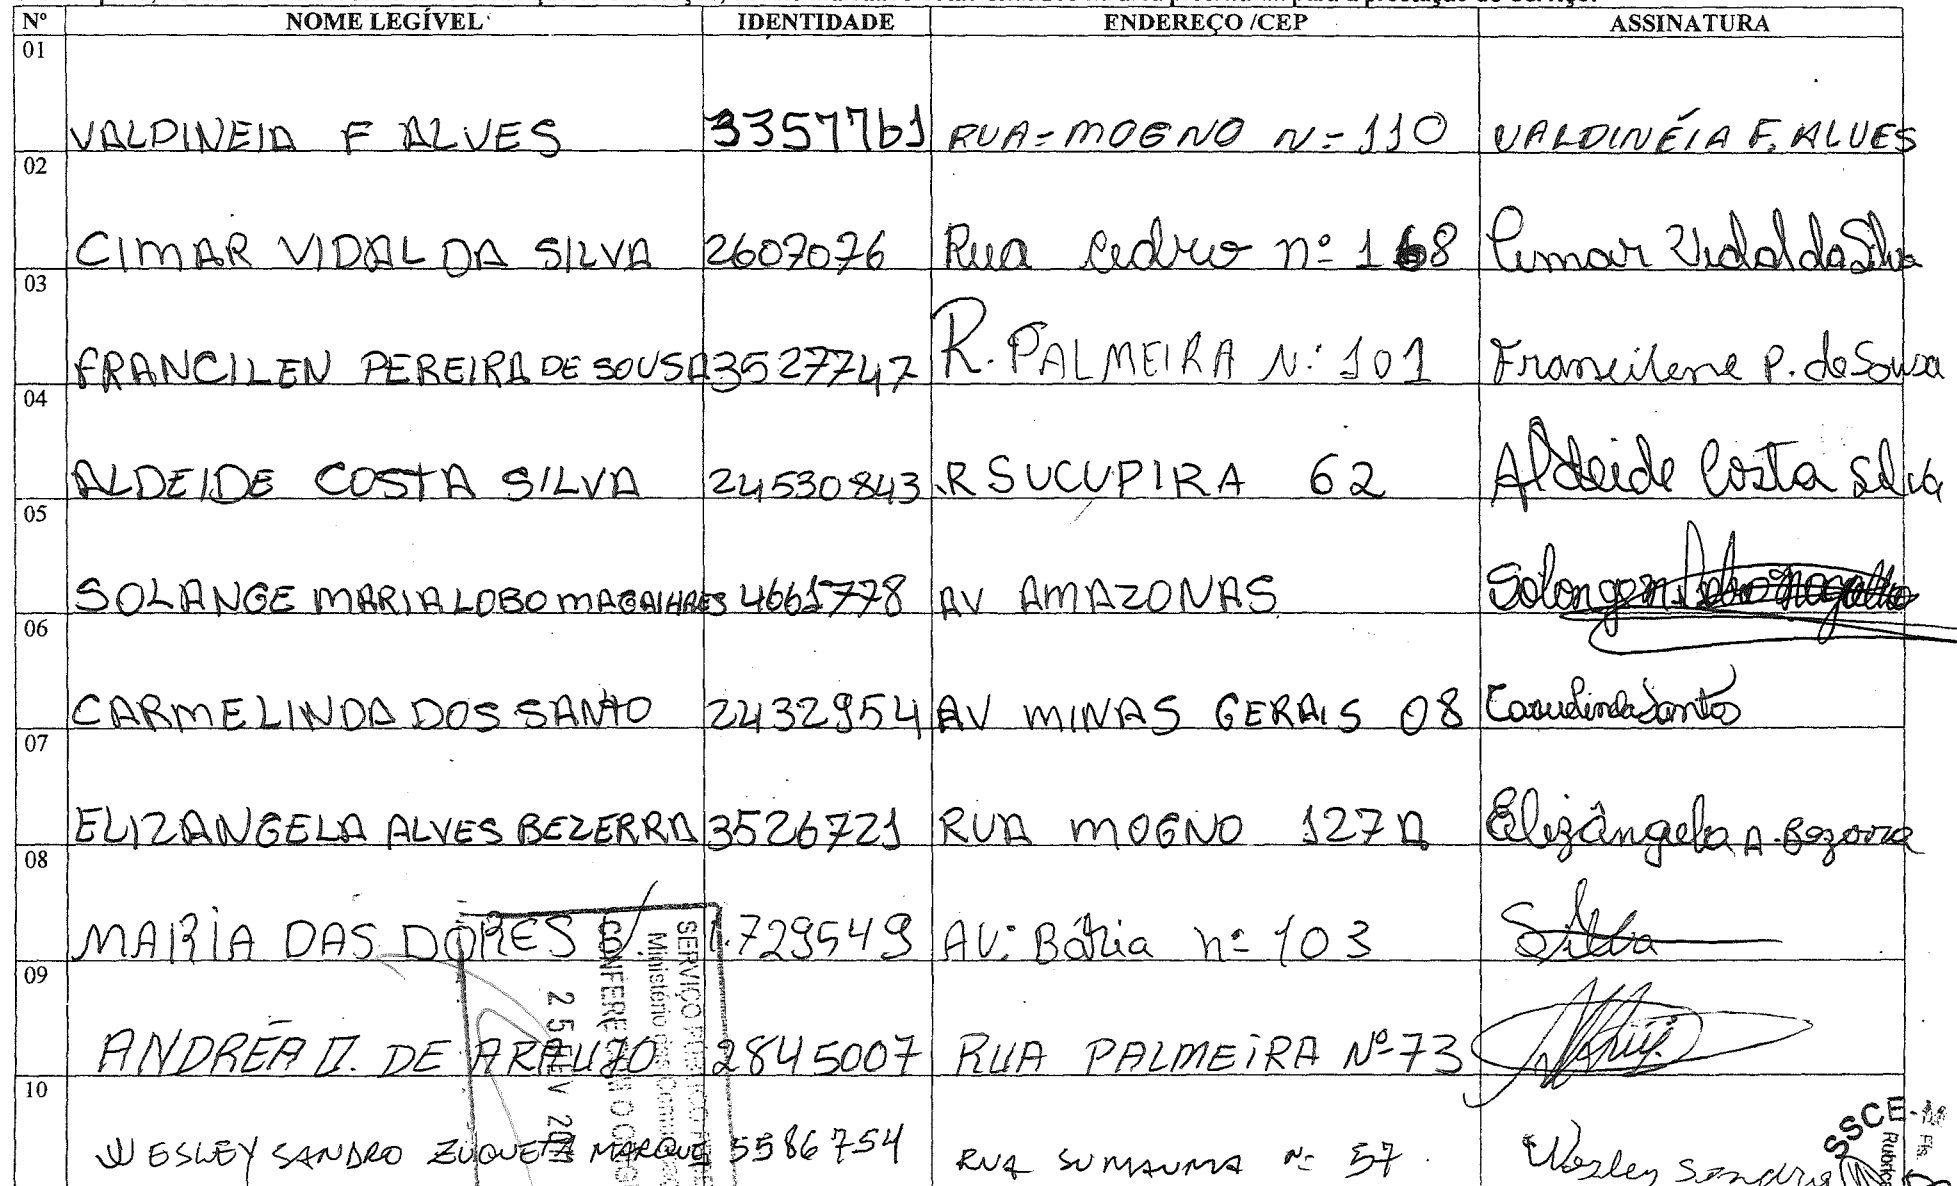 Nº NOME LEGÍVEL IDENTIDADE ENDEREÇO /CEP ASSINATURA
01
VALDINEIA F ALVES 3357761 RUA = MOGNO Nº 110 VALDINÉIA F. ALVES
02
CIMAR VIDAL DA SILVA 2607076 Rua Cedro nº 168 Cimar Vidal da Silva
03
FRANCILEN PEREIRA DE SOUSA 3527747 R. PALMEIRA N: 101 Francilene P. de Sousa
04
ALDEIDE COSTA SILVA 24530843 R SUCUPIRA 62 Aldeide Costa Silva
05
SOLANGE MARIA LOBO MAGALHAES 4661778 AV AMAZONAS Solange
06
CARMELINDA DOS SANTO 2432954 AV MINAS GERAIS 08 Carmelinda Santos
07
ELIZANGELA ALVES BEZERRA 3526721 RUA MOGNO 127 A Elizângela A. Bezerra
08
MARIA DAS DORES 1.729549 AV: Bahia nº 103 Silva
09
ANDRÉA DE ARAUJO 2845007 RUA PALMEIRA Nº 73
10
WESLEY SANDRO MARQUE 5586754 RUA SUMAUMA Nº 57 Wesley Sandro
SERVIÇO
Ministério
CONFERE
25
SSCE-M
Fls.
Rubrica